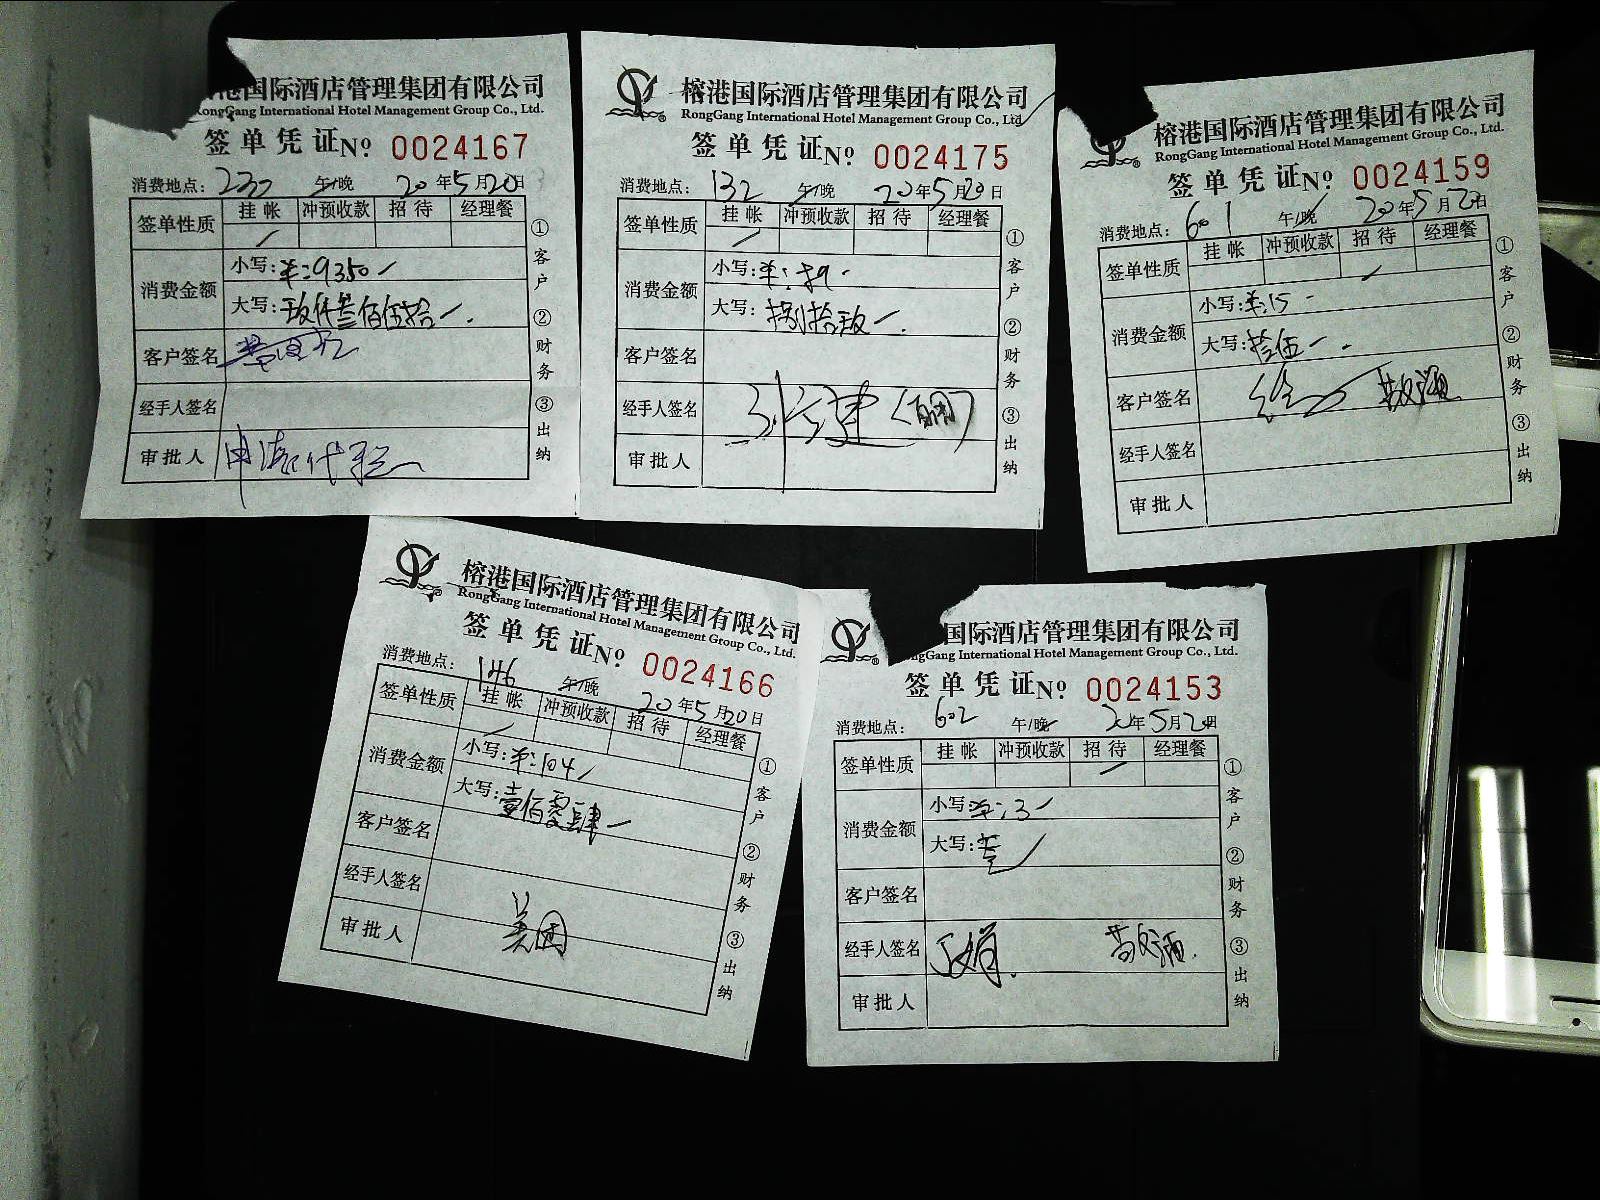 港国际酒店管理集团有限公司
RongGang International Hotel Management Group Co., Ltd.
签单凭证No 0024167
消费地点: 230 午/晚 20年5月20日
签单性质 挂帐 冲预收款 招待 经理餐
消费金额 小写: 9350
大写: 玖仟叁佰伍拾
客户签名
经手人签名
审批人
①客户 ②财务 ③出纳
榕港国际酒店管理集团有限公司
RongGang International Hotel Management Group Co., Ltd
签单凭证No 0024175
消费地点: 132 午/晚 20年5月20日
签单性质 挂帐 冲预收款 招待 经理餐
消费金额 小写: 89
大写: 捌拾玖
客户签名
经手人签名
审批人
①客户 ②财务 ③出纳
榕港国际酒店管理集团有限公司
RongGang International Hotel Management Group Co., Ltd.
签单凭证No 0024159
消费地点: 601 午/晚 20年5月20日
签单性质 挂帐 冲预收款 招待 经理餐
消费金额 小写: 15
大写: 拾伍
客户签名
经手人签名
审批人
①客户 ②财务 ③出纳
榕港国际酒店管理集团有限公司
RongGang International Hotel Management Group Co., Ltd.
签单凭证No 0024166
消费地点: 146 午/晚 20年5月20日
签单性质 挂帐 冲预收款 招待 经理餐
消费金额 小写: 104
大写: 壹佰零肆
客户签名
经手人签名
审批人 美团
①客户 ②财务 ③出纳
国际酒店管理集团有限公司
Gang International Hotel Management Group Co., Ltd.
签单凭证No 0024153
消费地点: 602 午/晚 20年5月20日
签单性质 挂帐 冲预收款 招待 经理餐
消费金额 小写: 3
大写: 叁
客户签名
经手人签名
审批人
①客户 ②财务 ③出纳